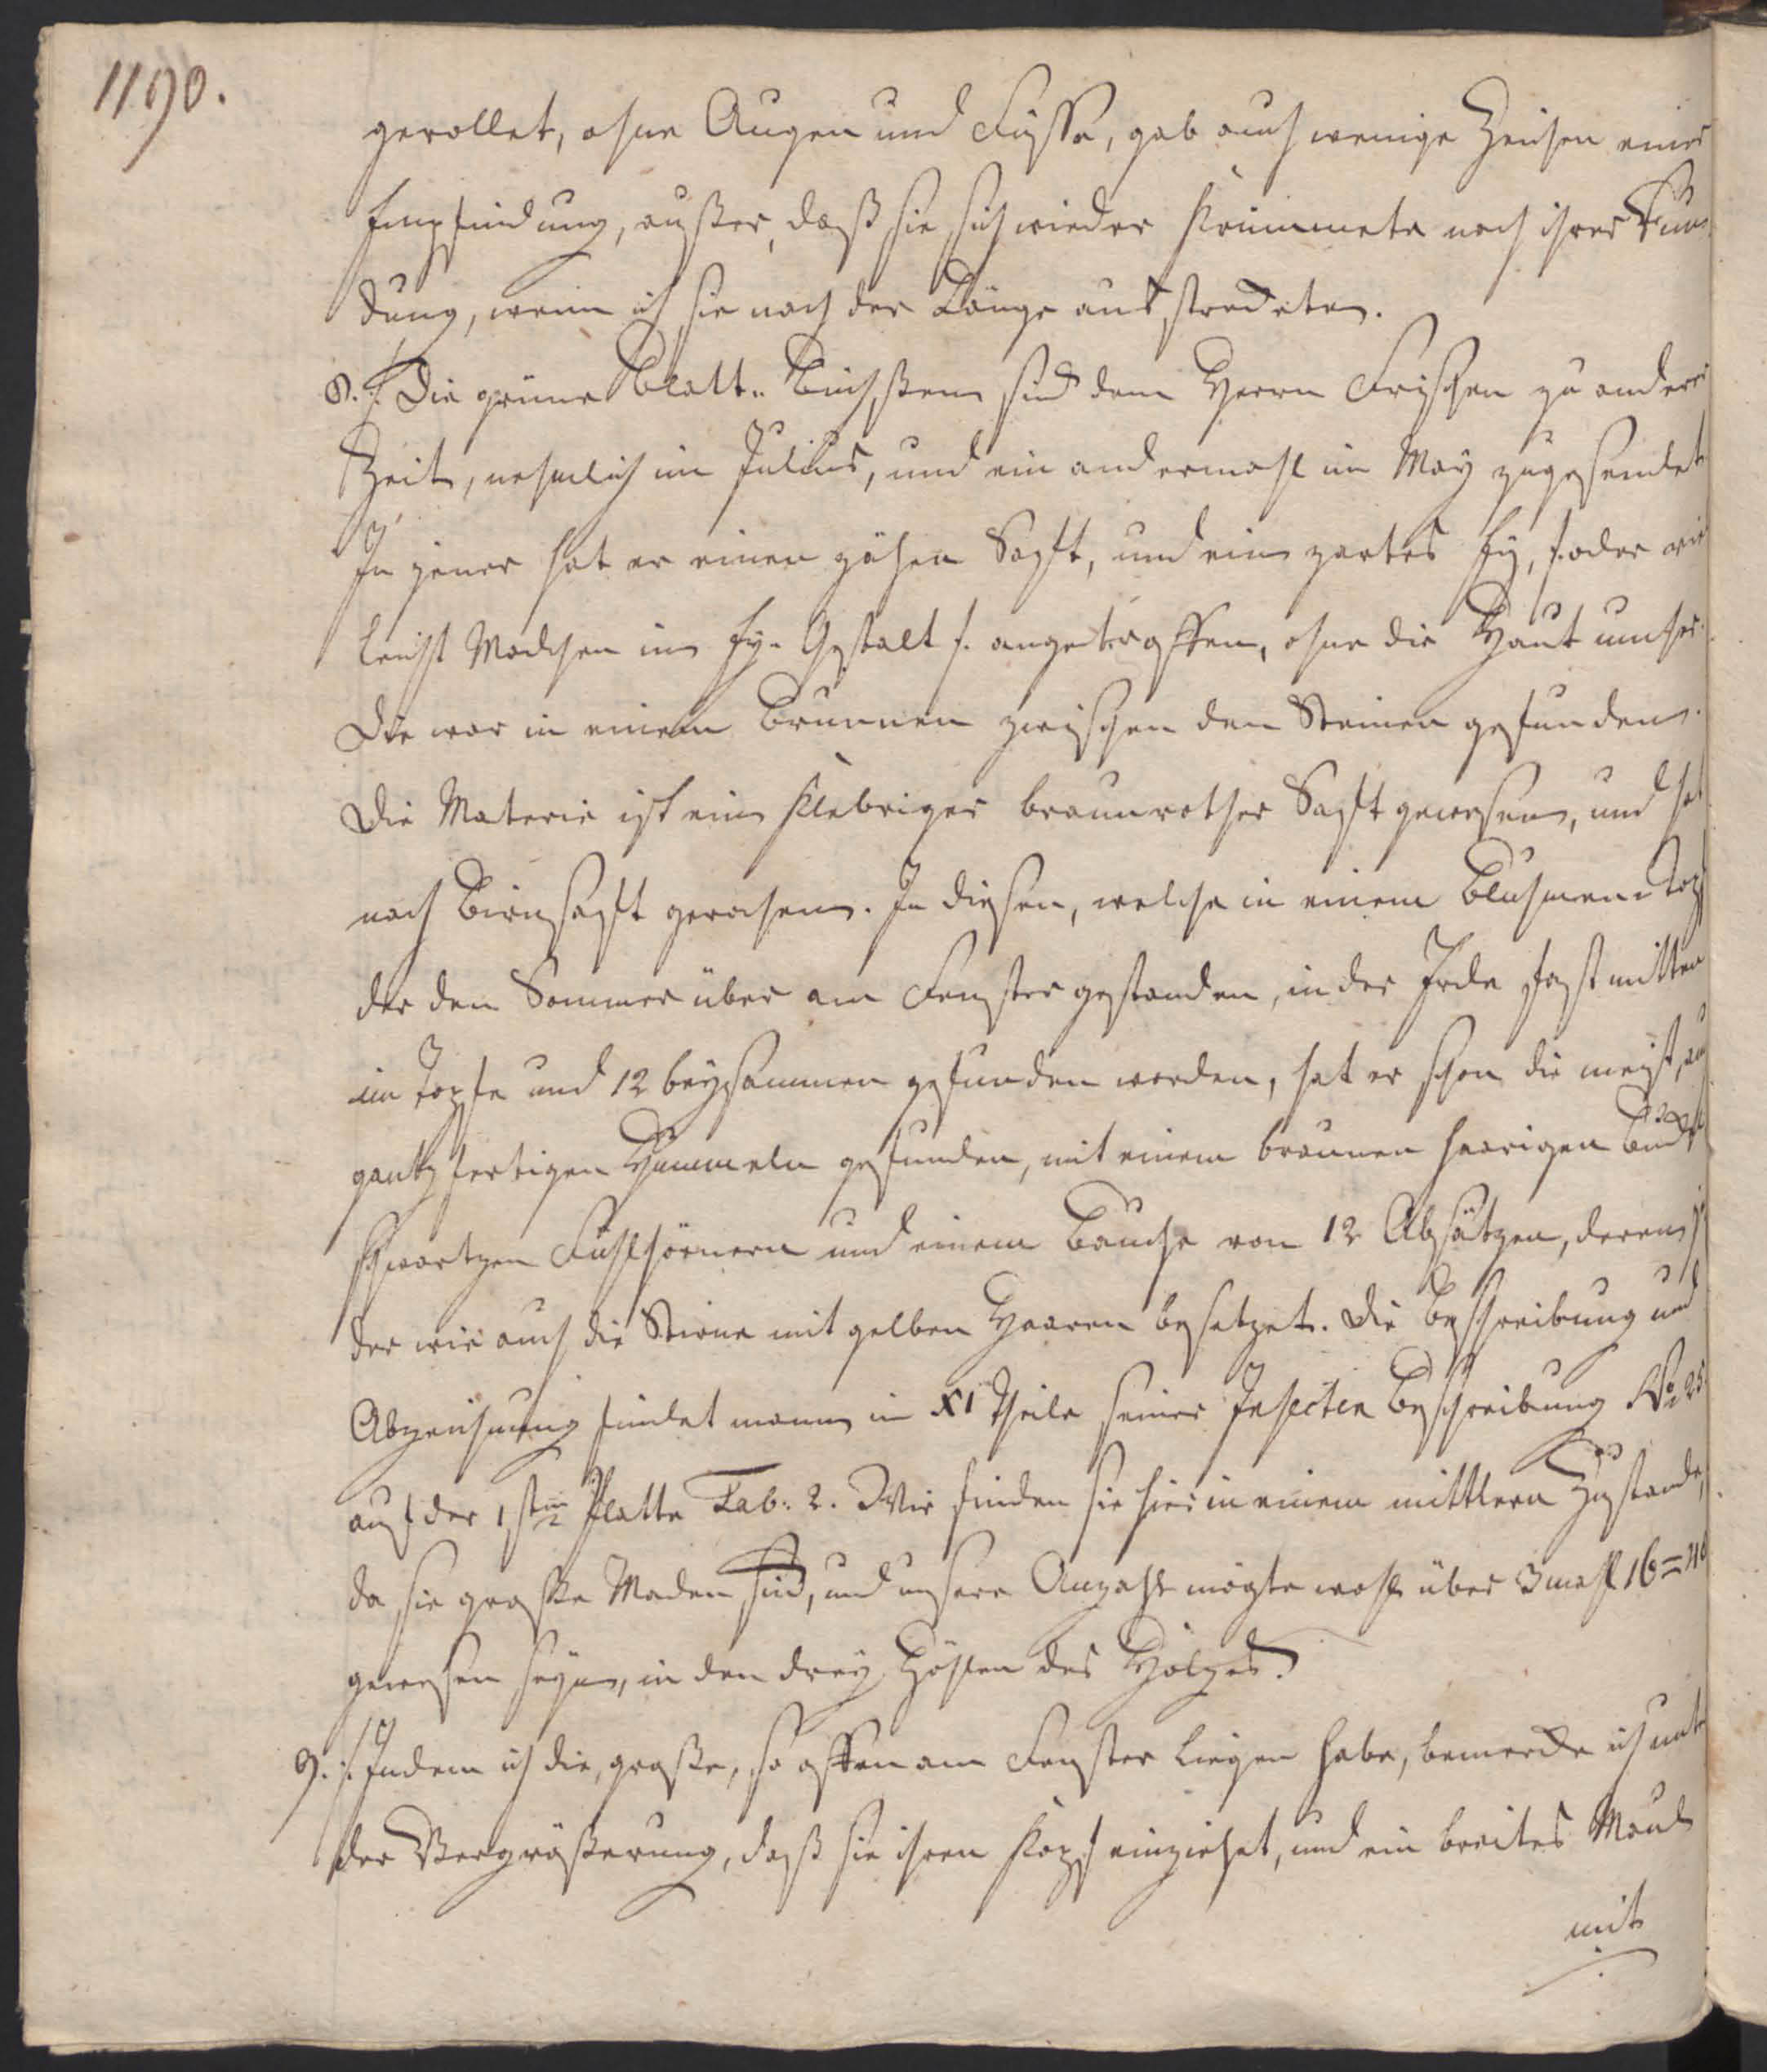 1190.
gerollet, ohne Augen und Füsse, gab auch wenige Zeichen einer
Empfindung, außer, daß sie sich wieder krümmete nach ihrer Run-
dung, wenn ich sie nach der Länge ausstreckete.
8. /: Die grüne Blatt-Büchssen sind dem Herrn Frischen zu anderer
Zeit, nehmlich im Julius, und ein andermahl im May zugesendet.
In jener hat er einen zähen Safft, und ein zartes Ey, /: oder vie
leicht Mädchen in Ey-Gestalt /: angetroffen, ohne die Haut umher.
Die war in einem Brunnen zwischen den Steinen gefunden.
Die Materie ist ein klebriger braunrother Safft gewesen, und hat
nach Birnsafft gerochen. In diesen, welche in einem Bluhmen-Topf
der den Sommer über am Fenster gestanden, in der Erde fast mitten
im Topfe und 12 beysammen gefunden worden, hat er schon die meist, an
gantz fertigen Hummeln gefunden, mit einem braunen haarigen
schwartzen Fühlhörnern und einem Bauche von 12 Absätzen, deren je
der wie auch die Stirne mit gelben Haaren besetzet. Die Beschreibung und
Abzeichnung findet mann im XI Theile seiner Insecten Beschreibung No 25.
auf der 1sten Platte Tab: 2. Wir finden sie hier in einem mittlern Zustande,
da sie große Maden sind, und unsere Anzahl mögte wohl über 3 mahl 16=48
gewesen seyn, in den drey Höhlen des Holzes.
9. /: Indem ich die, große, so offen am Fenster liegen habe, bemercke ich unt
der Vergrößerung, daß sie ihren Kopf einziehet, und ein breites Maul
mit